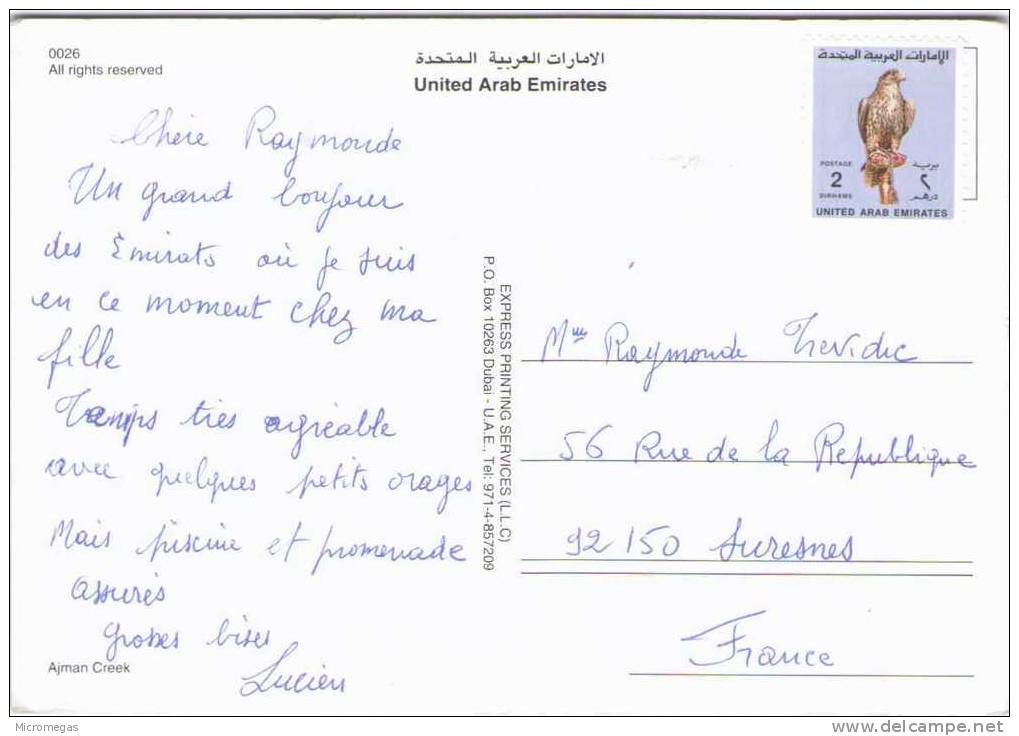 0026
All rights reserved
الامارات العربية المتحدة
United Arab Emirates
الإمارات العربية المتحدة
POSTAGE
بريد
2
٢
DIRHAMS
درهم
UNITED ARAB EMIRATES
Chère Raymonde
Un grand bonjour
des Emirats où je suis
en ce moment chez ma
fille
Temps très agréable
avec quelques petits orages
Mais piscine et promenade
assurés
Grosses bises
Lucien
Ajman Creek
EXPRESS PRINTING SERVICES (L.L.C)
P.O. Box 10263 Dubai - U.A.E., Tel: 971-4-857209
Mme Raymonde Trevidic
56 Rue de la Republique
92150 Suresnes
France
Micromegas
www.delcampe.net